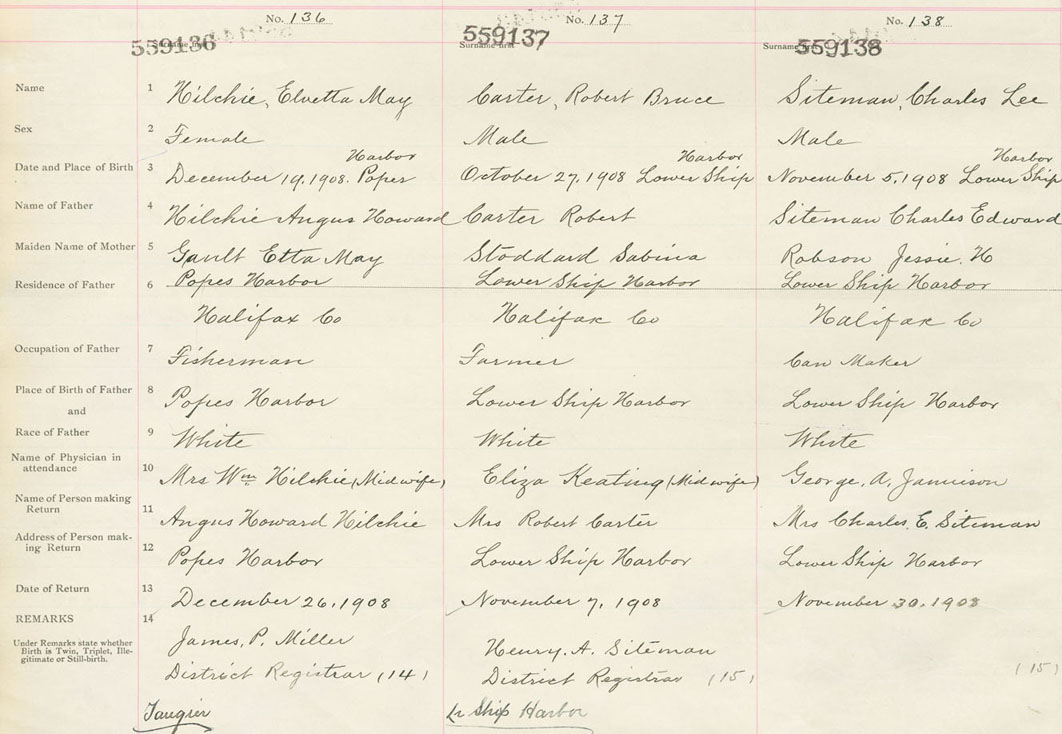 No. 136 No. 137 No. 138
559136 559137 559138
Surname first Surname first Surname first
Name 1 Hilchie, Elvetta May Carter, Robert Bruce Siteman, Charles Lee
Sex 2 Female Male Male
Harbor Harbor Harbor
Date and Place of Birth 3 December 19, 1908. Popes October 27, 1908 Lower Ship November 5, 1908 Lower Ship
Name of Father 4 Hilchie Angus Howard Carter Robert Siteman Charles Edward
Maiden Name of Mother 5 Gault Etta May Stoddard Sabina Robson Jessie. H
Residence of Father 6 Popes Harbor Lower Ship Harbor Lower Ship Harbor
Halifax Co Halifax Co Halifax Co
Occupation of Father 7 Fisherman Farmer Can Maker
Place of Birth of Father 8 Popes Harbor Lower Ship Harbor Lower Ship Harbor
and
Race of Father 9 White White White
Name of Physician in
attendance 10 Mrs Wm Hilchie (Midwife) Eliza Keating (Midwife) George. A. Jamieson
Name of Person making
Return 11 Angus Howard Hilchie Mrs Robert Carter Mrs Charles. E. Siteman
Address of Person mak-
ing Return 12 Popes Harbor Lower Ship Harbor Lower Ship Harbor
Date of Return 13 December 26, 1908 November 7, 1908 November 30, 1908
REMARKS 14
Under Remarks state whether
Birth is Twin, Triplet, Ille-
gitimate or Still-birth.
James, P. Miller Henry. A. Siteman
District Registrar (14) District Registrar (15) (15)
Tangier Lr Ship Harbor